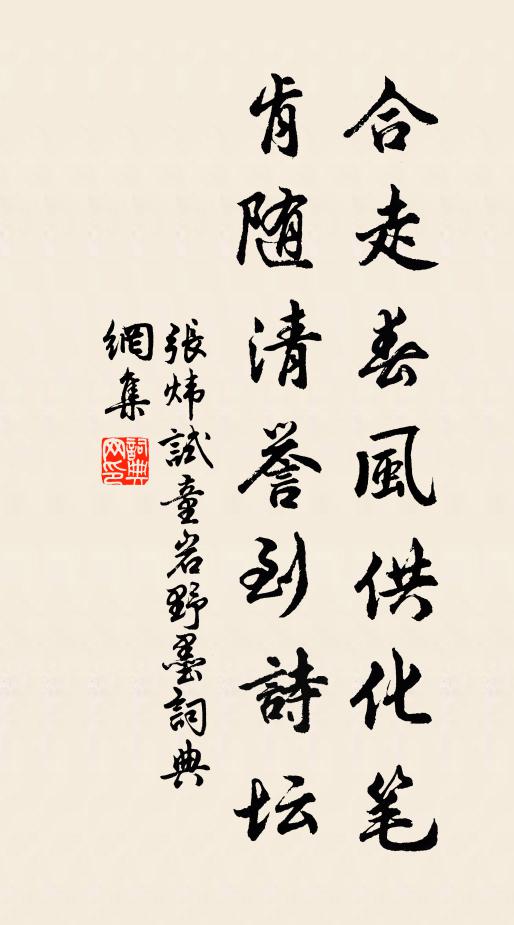 合走春風供化笔
肯随清誉到詩坛
張炜試童岩野墨詞典
網集
詞典
网印